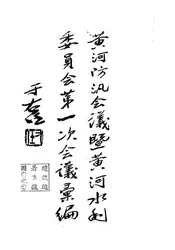 黄河防汛会議暨黄河水利
委員会第一次会議彙編
于